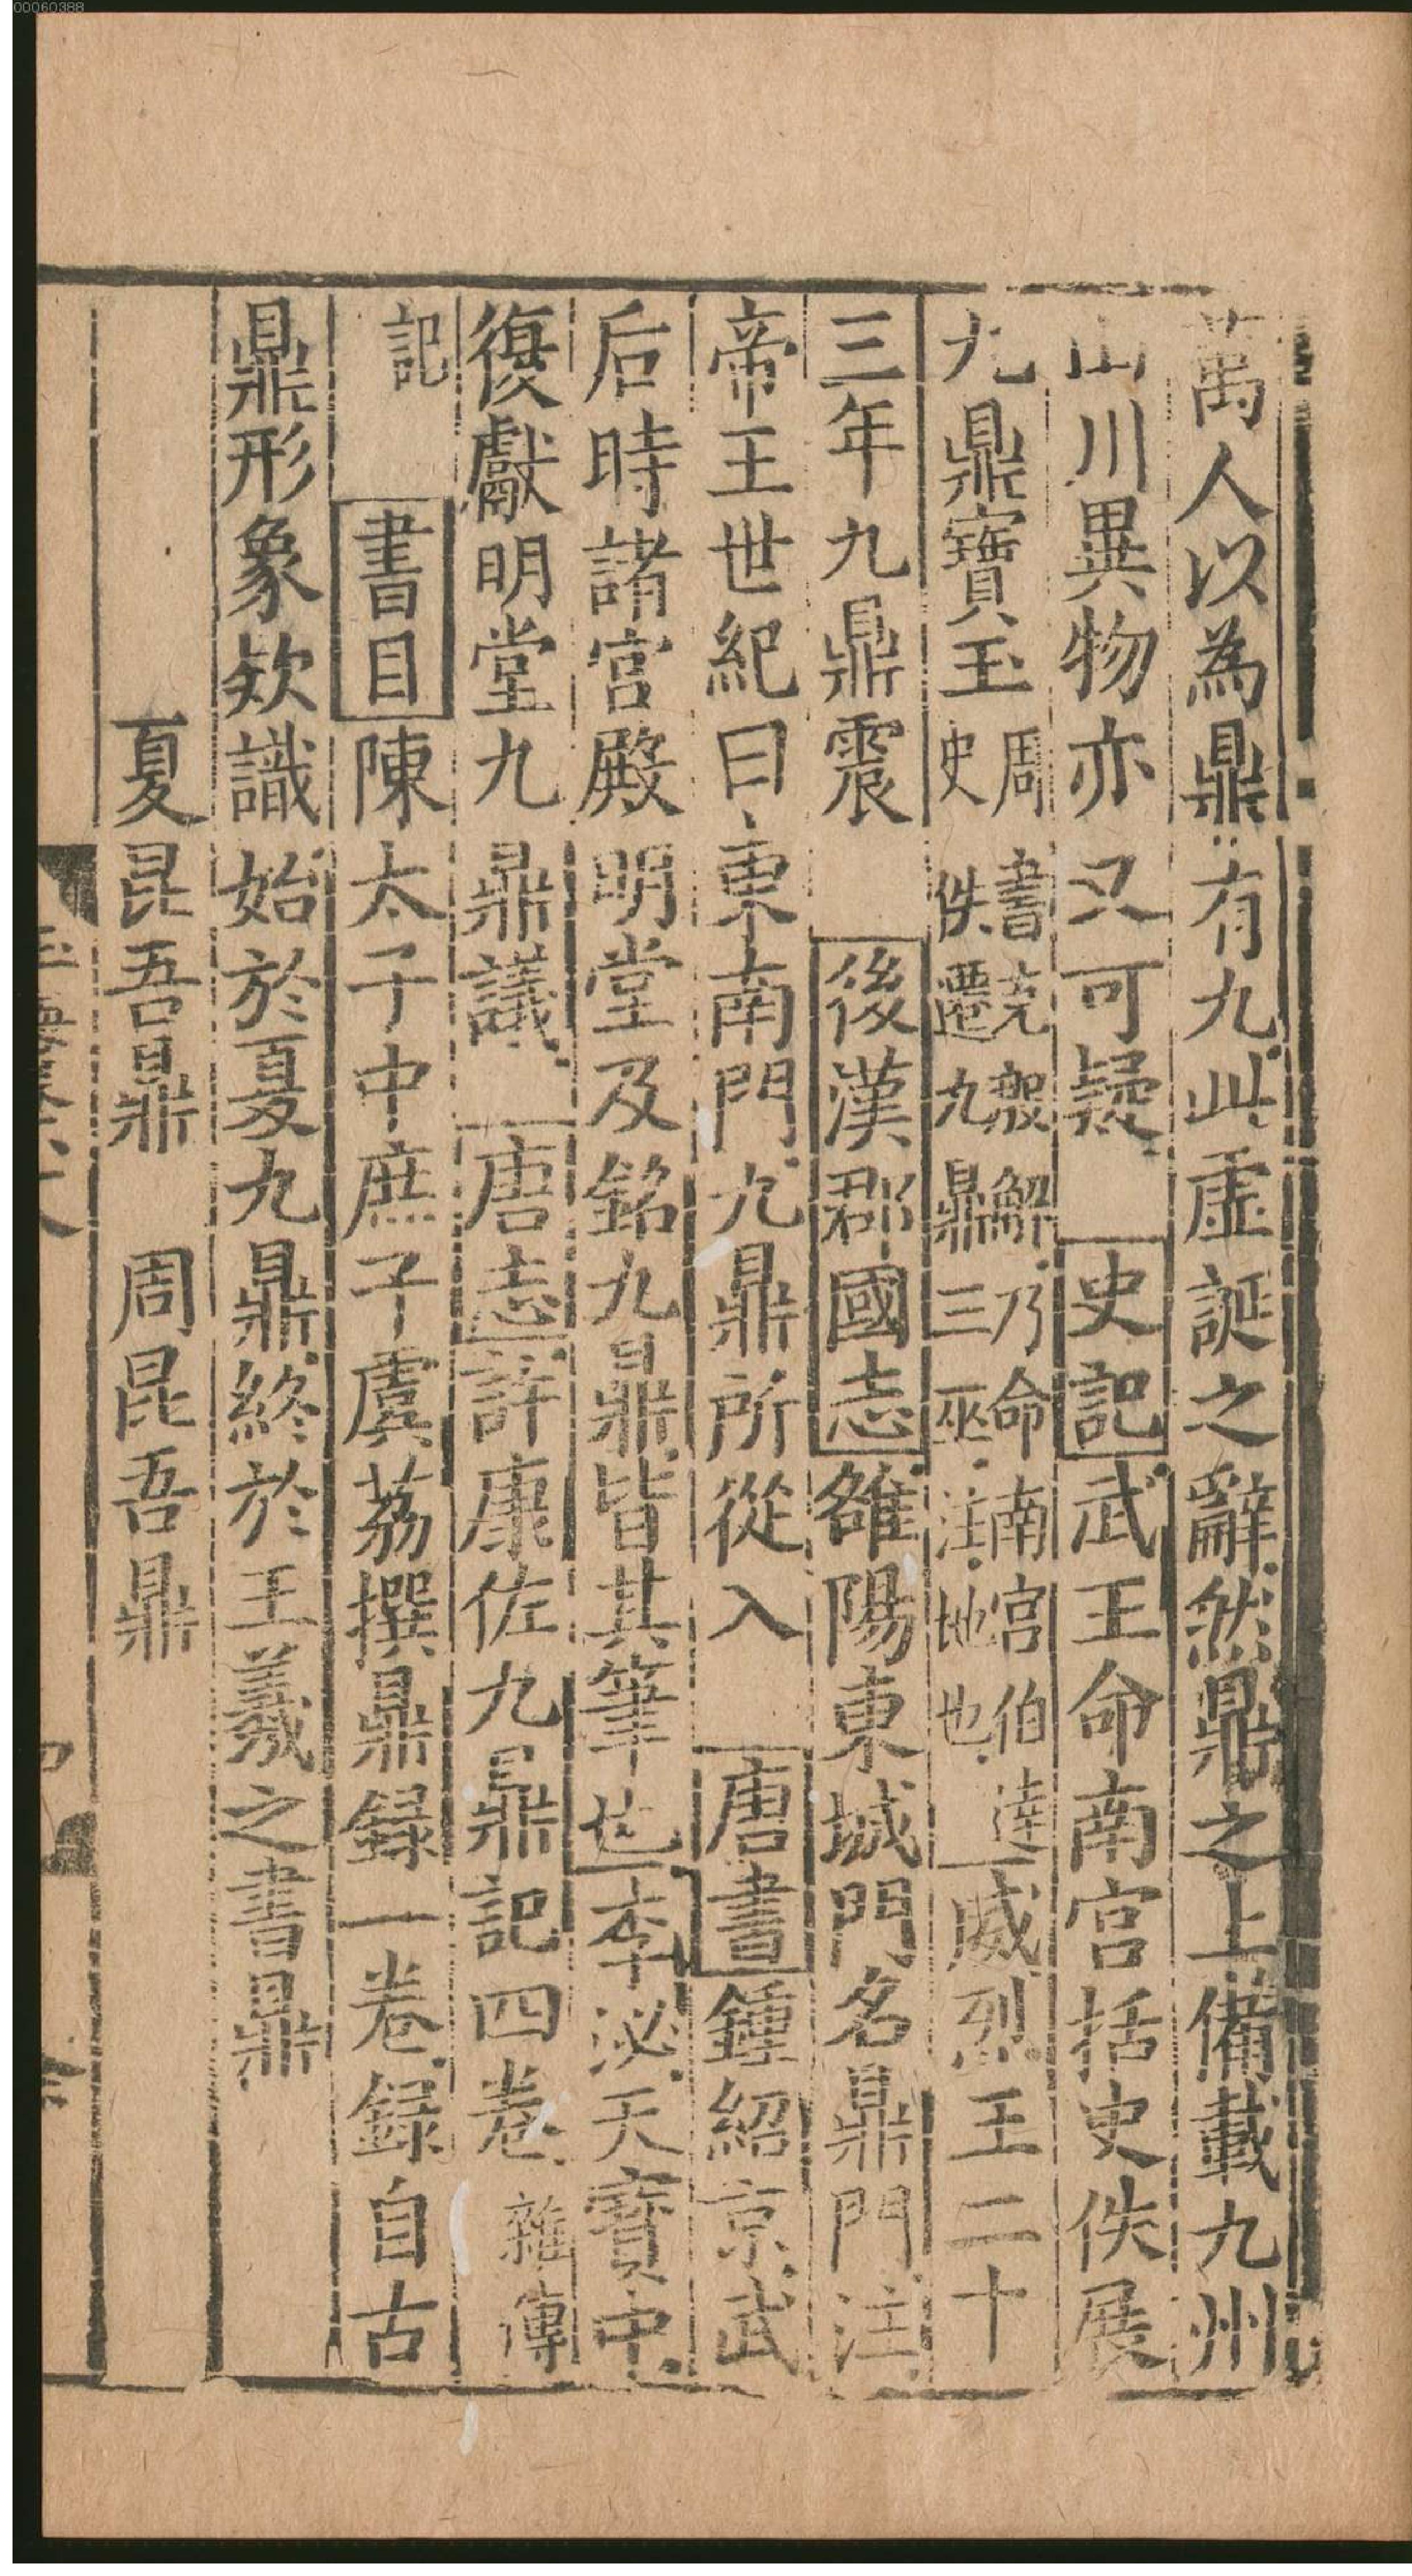 00060388
萬人以為鼎有九此虛誕之辭然鼎之上備載九州
山川異物亦又可疑 史記武王命南宮括史佚展
九鼎寶玉周書克殷解乃命南宮伯達史佚遷九鼎三巫注地也威烈王二十
三年九鼎震 後漢郡國志雒陽東城門名鼎門注
帝王世紀曰東南門九鼎所從入 唐書鍾紹京武
后時諸宮殿明堂及銘九鼎皆其筆也李泌天寶中
復獻明堂九鼎議 唐志許康佐九鼎記四卷雜傳
記 書目陳太子中庶子虞荔撰鼎録一卷録自古
鼎形象欵識始於夏九鼎終於王羲之書鼎
夏昆吾鼎 周昆吾鼎